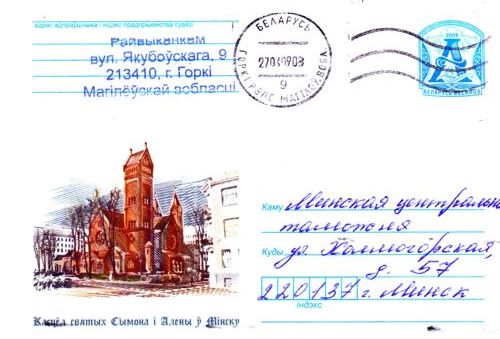 адрас адпраўшчыка і індэкс прадпрыемства сувязі
Райвыканкам
вул. Якубоўскага, 9
213410, г. Горкі
Магілёўскай вобласці
БЕЛАРУСЬ
27030908
9
2009
А
БЕЛАРУСЬ
Каму Минская центральная
таможня
Куды ул. Холмогорская,
д. 57
220137 г. Минск
індэкс
Касцёл святых Сымона і Алены ў Мінску